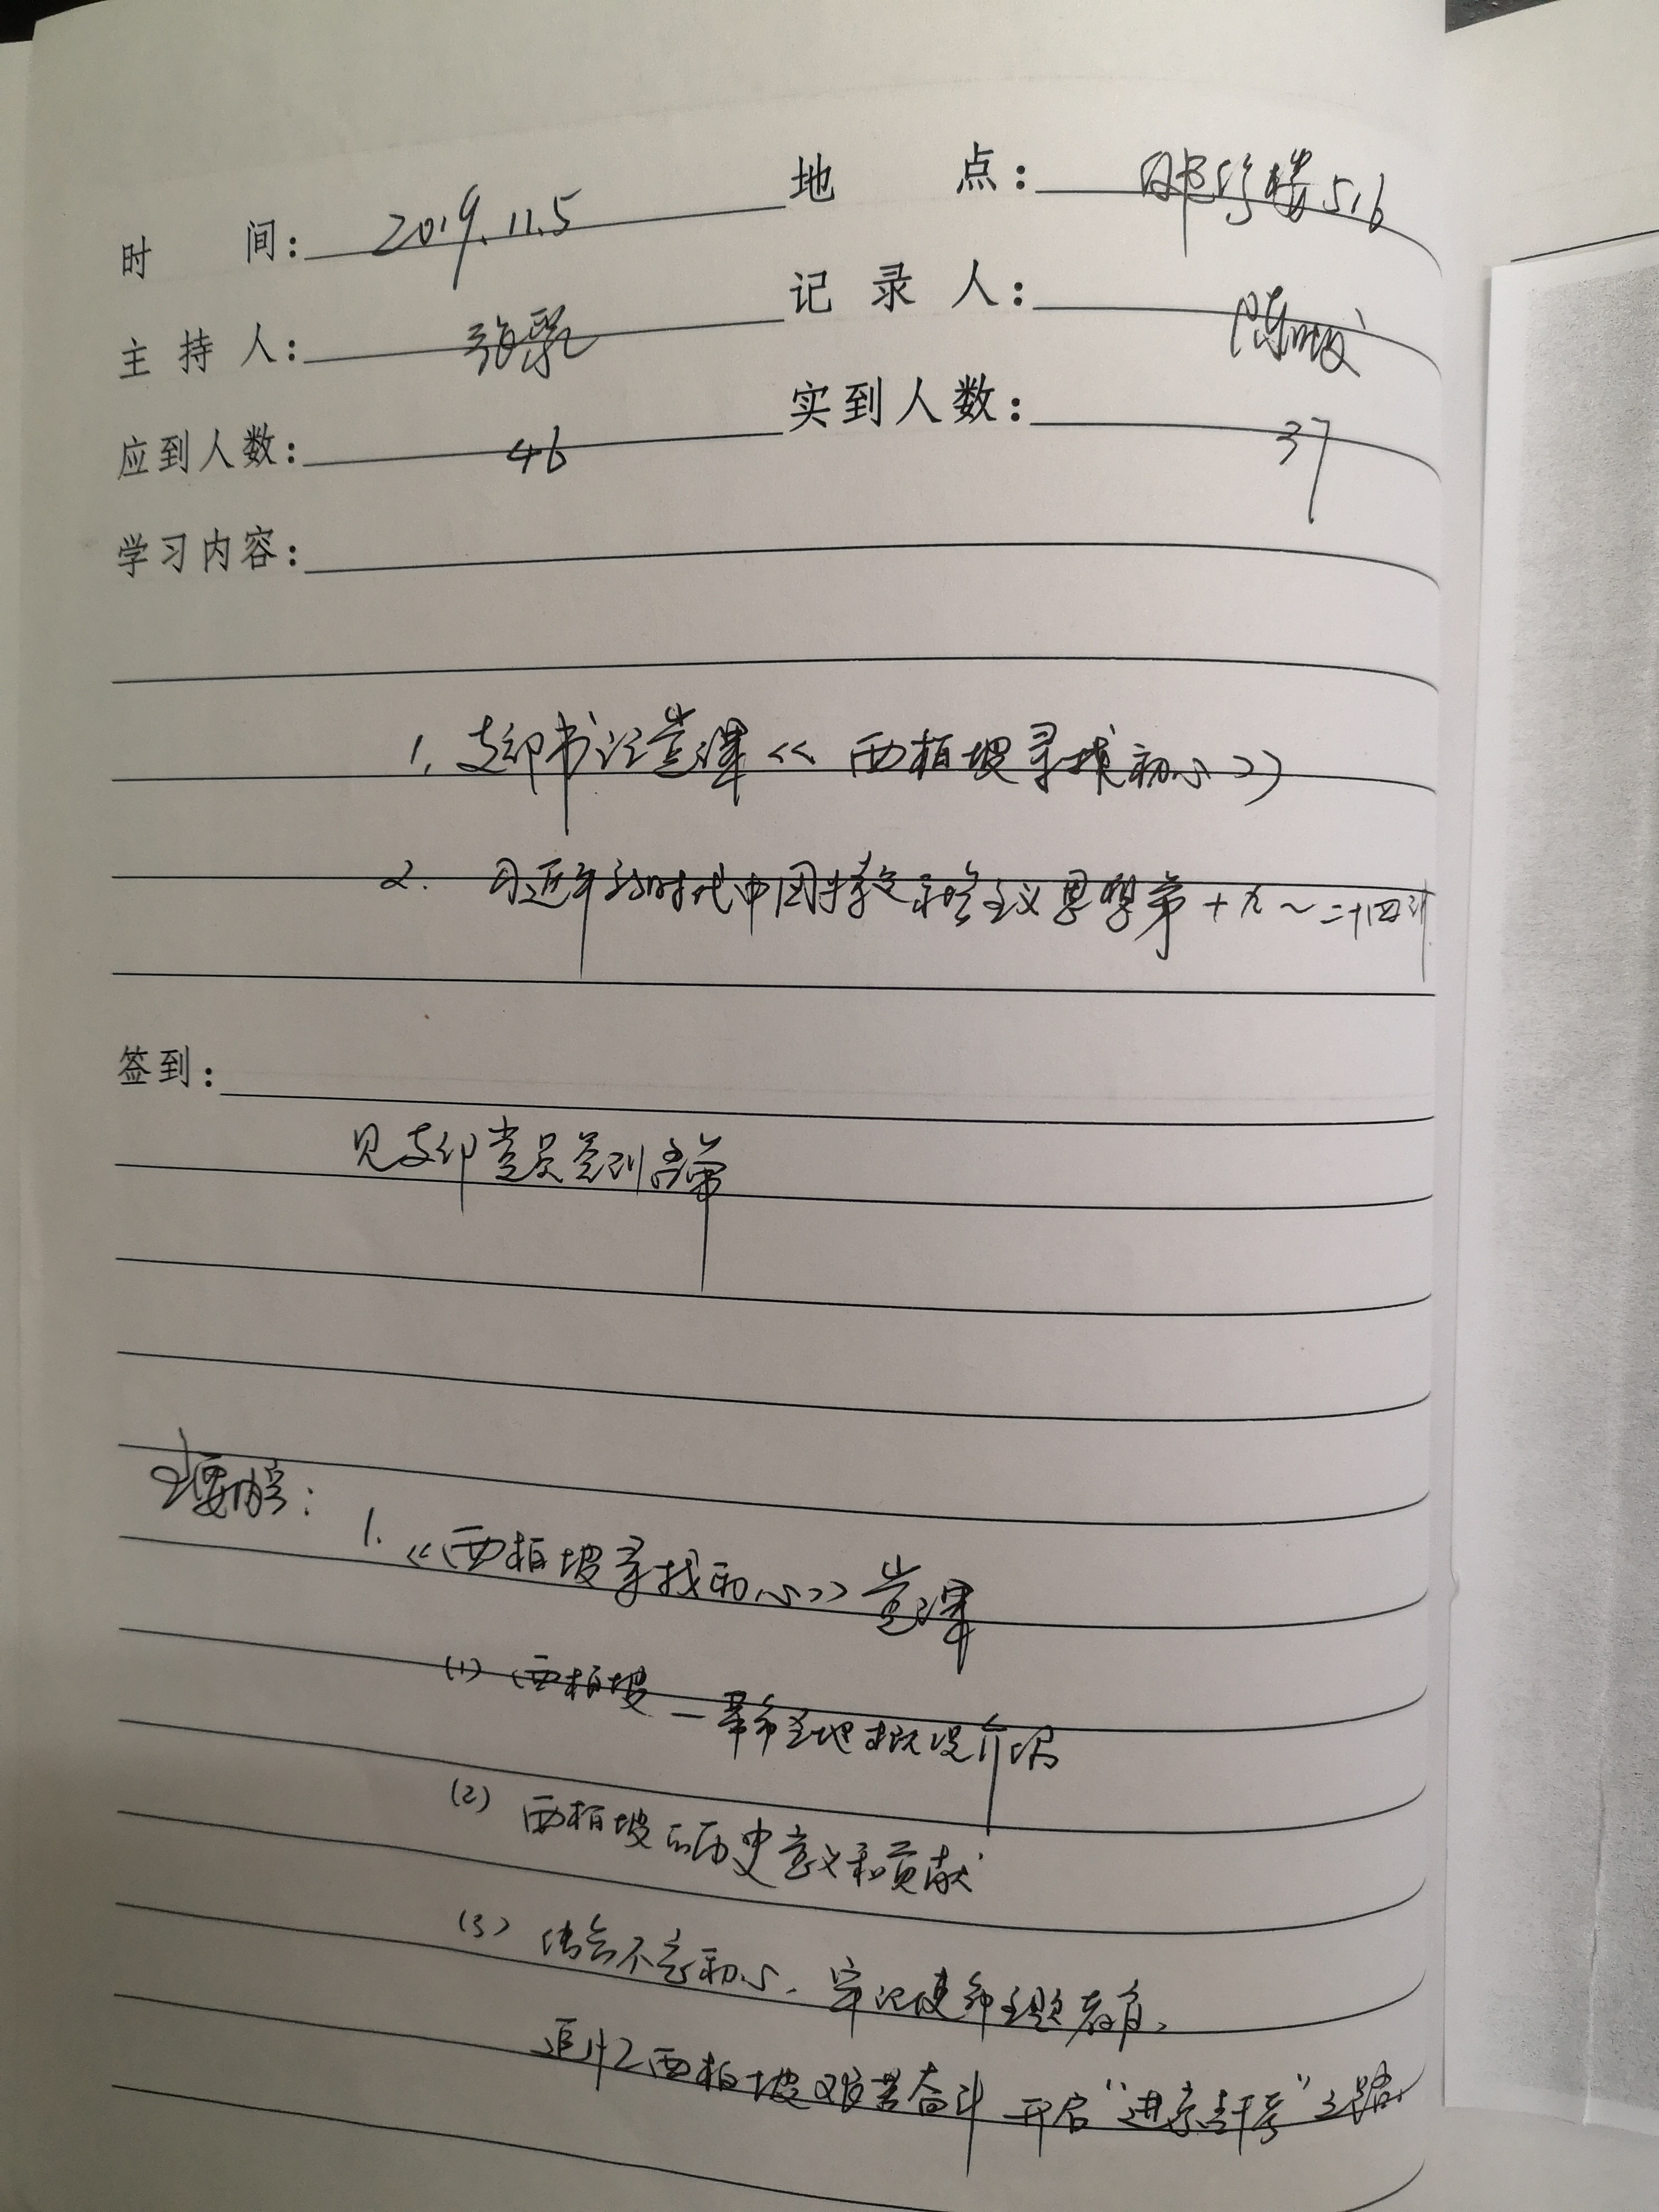 时 间：2019.11.5 地 点：楼516
主 持 人：张 记 录 人：陈
应到人数：46 实到人数：37
学习内容：
1. 支部书记党课《西柏坡寻找初心》
2. 习近平新时代中国特色社会主义思想第十九~二十四讲
签到：
见支部党员签到名单
主要内容：
1.《西柏坡寻找初心》党课
(1) 西柏坡—革命圣地概况介绍
(2) 西柏坡的历史意义和贡献
(3) 结合不忘初心、牢记使命主题教育，
追忆西柏坡艰苦奋斗 开启“进京赶考”之路